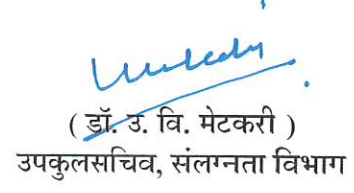 ( डॉ. उ. वि. मेटकरी )
उपकुलसचिव, संलग्नता विभाग